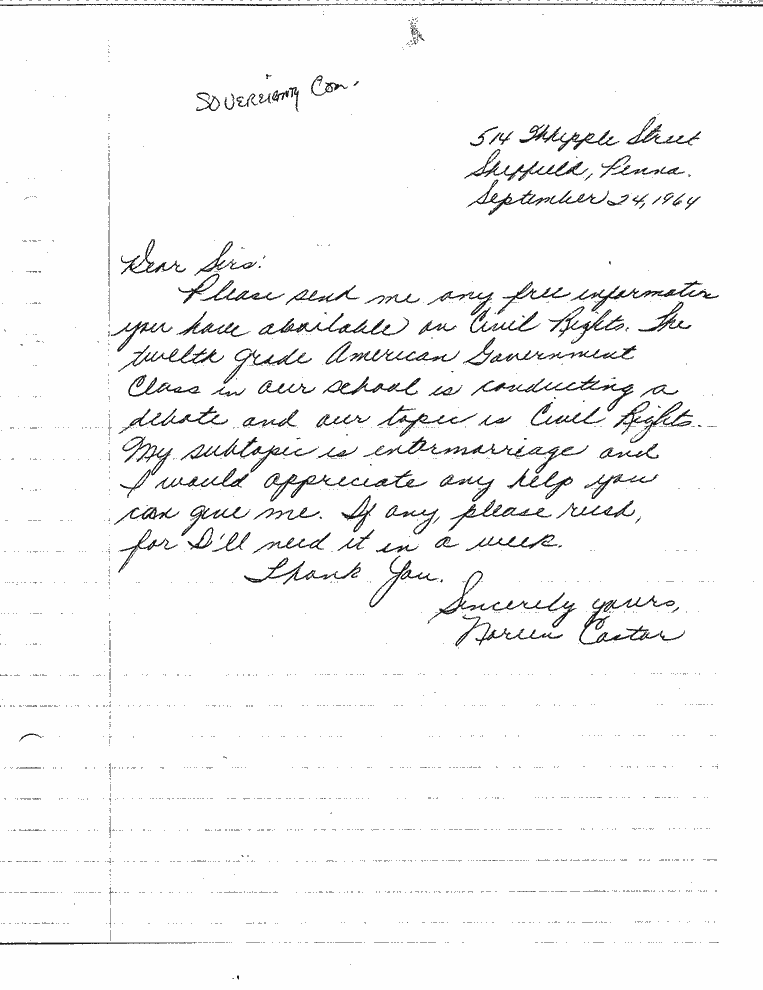 SOVEREIGNTY Com.
514 Whipple Street
Sheffield, Penna.
September 24, 1964
Dear Sirs:
Please send me any free information
you have available on Civil Rights. The
twelth grade American Government
Class in our school is conducting a
debate and our topic is Civil Rights.
My subtopic is intermarriage and
I would appreciate any help you
can give me. If any, please rush,
for I'll need it in a week.
Thank You.
Sincerely yours,
Noreen Castor